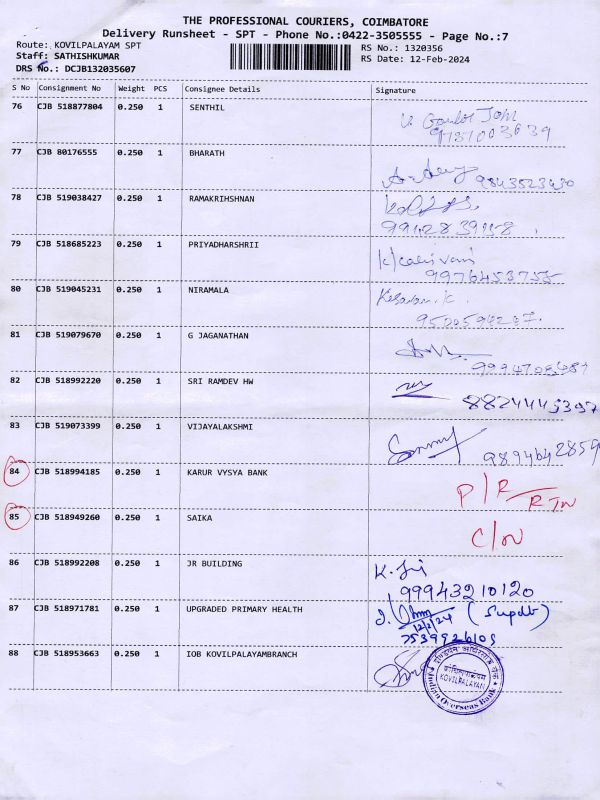 THE PROFESSIONAL COURIERS, COIMBATORE
Delivery Runsheet - SPT - Phone No.:0422-3505555 - Page No.:7
Route: KOVILPALAYAM SPT
Staff: SATHISHKUMAR
DRS No.: DCJB132035607
RS No.: 1320356
RS Date: 12-Feb-2024
S No Consignment No Weight PCS Consignee Details Signature
76 CJB 518877804 0.250 1 SENTHIL
77 CJB 80176555 0.250 1 BHARATH
9843523430
78 CJB 519038427 0.250 1 RAMAKRIHSHNAN
79 CJB 518685223 0.250 1 PRIYADHARSHRII
9976453755
80 CJB 519045231 0.250 1 NIRAMALA
81 CJB 519079670 0.250 1 G JAGANATHAN
82 CJB 518992220 0.250 1 SRI RAMDEV HW
8824445397
83 CJB 519073399 0.250 1 VIJAYALAKSHMI
9894642859
84 CJB 518994185 0.250 1 KARUR VYSYA BANK
P/R RTN
85 CJB 518949260 0.250 1 SAIKA
C/N
86 CJB 518992208 0.250 1 JR BUILDING
99943210120
87 CJB 518971781 0.250 1 UPGRADED PRIMARY HEALTH
(Supdt)
12/2/24
7539926103
88 CJB 518953663 0.250 1 IOB KOVILPALAYAMBRANCH
KOVILPALAYAM
Indian Overseas Bank